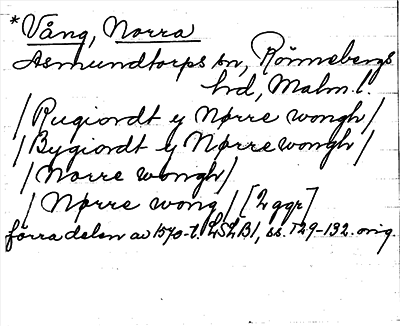 *Vång, Norra
Asmundtorps sn, Rönnebergs
hd, Malm.l.
/Rugiordt y Nørre wongh/
/Bygiordt y Nørre wongh/
/Norre wongh/
/Nørre wong/ [2 ggr]
förra delen av 1570-t. LSLB1, ss. 129-132. orig.